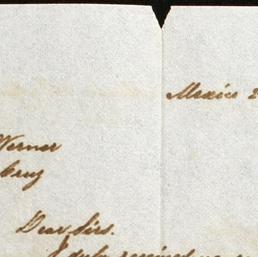 Mexico 2
Werner
Cruz
Dear Sirs.
I duly received